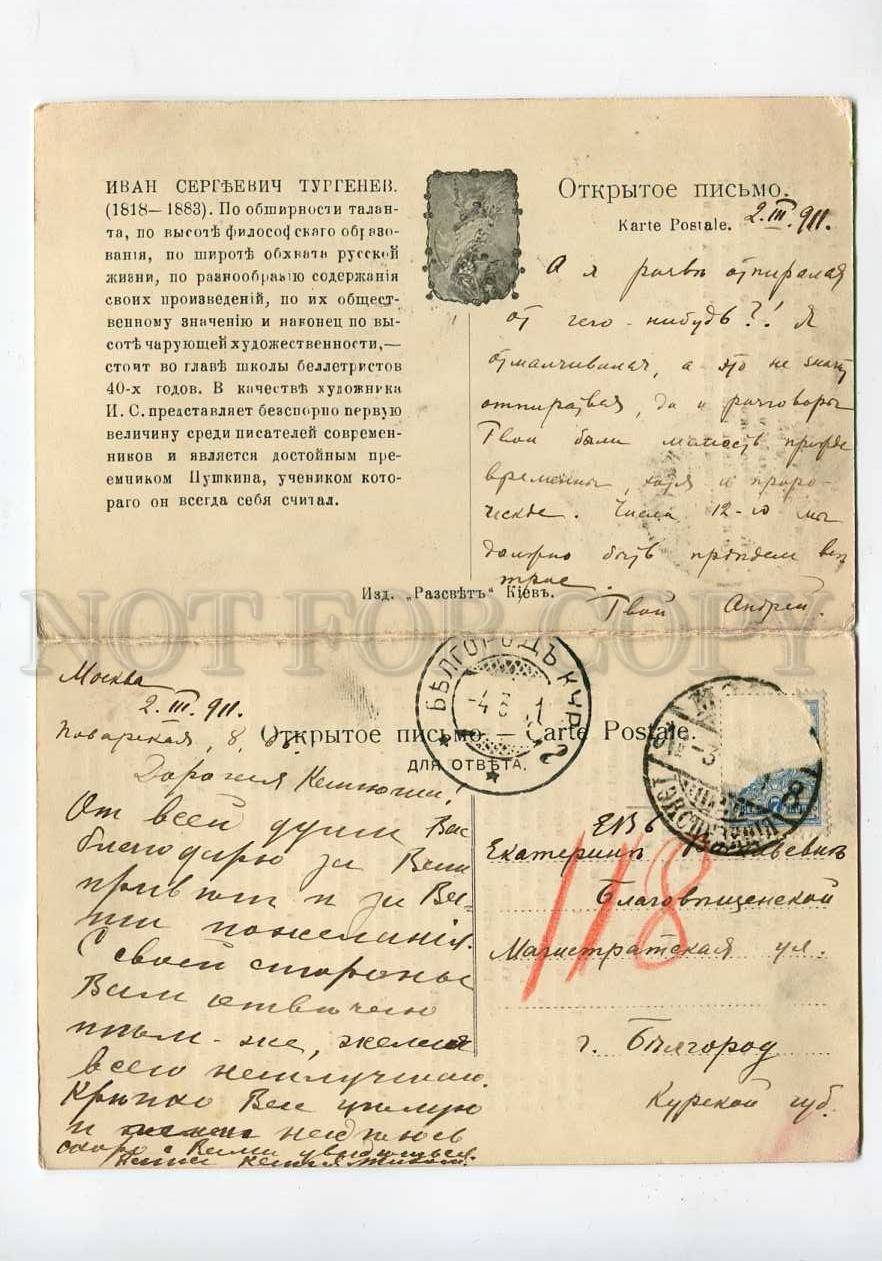 ИВАН СЕРГѢЕВИЧ ТУРГЕНЕВ.
(1818—1883). По обширности талан-
та, по высотѣ философскаго образо-
ванія, по широтѣ обхвата русской
жизни, по разнообразію содержанія
своих произведеній, по их общест-
венному значенію и наконец по вы-
сотѣ чарующей художественности,—
стоит во главѣ школы беллетристов
40-х годов. В качествѣ художника
И. С. представляет безспорно первую
величину среди писателей современ-
ников и является достойным пре-
емником Пушкина, учеником кото-
раго он всегда себя считал.
Открытое письмо.
Karte Postale. 2.III.911.
А я развѣ отпирался
от чего-нибудь?! Я
отмалчивался, а это не значит
отпираться, да и разговоры
Твои были малость прежде
временны, хотя и проро-
ческие. Числа 12-го мы
должно быть приѣдем
Твой Андрей.
Изд. „Разсвѣтъ" Кіевъ.
NOT FOR COPY
Москва
2.III.911.
Поварская, 8,
Открытое письмо. — Carte Postale.
ДЛЯ ОТВѢТА.
БѢЛГОРОДЪ КУР.
Дорогия
От всей души Вас
благодарю за Ваш
привѣт и за Ва-
ши пожелания.
С своей стороны
Вам отвѣчаю
тѣм-же, желая
всего наилучшаго.
Крѣпко Вас цѣлую
и надѣюсь
скоро с Вами увидѣться.
ЕВБ
Екатеринѣ
Благовѣщенской
118
Магистратская ул.
г. Бѣлгород
Курской губ.